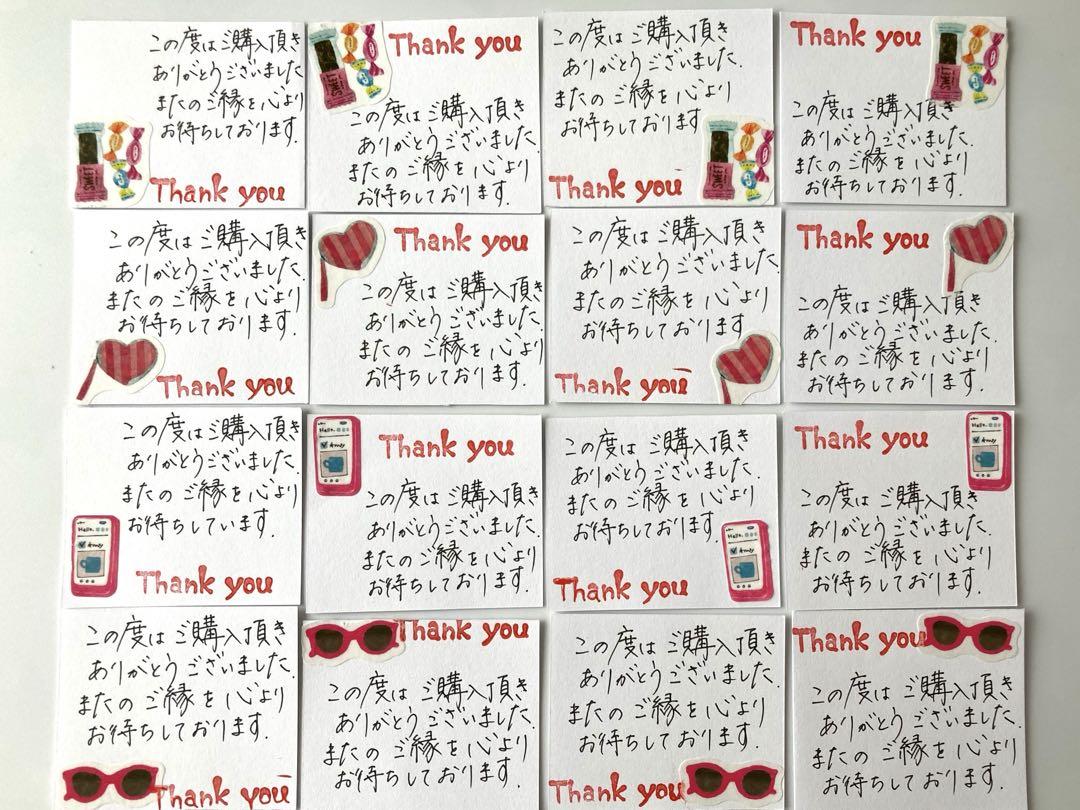 この度はご購入頂き
ありがとうございました.
またのご縁を心より
お待ちしております.
SWEET
Thank you
SWEET
Thank you
この度はご購入頂き
ありがとうございました.
またのご縁を心より
お待ちしております.
この度はご購入頂き
ありがとうございました.
またのご縁を心より
お待ちしております
SWEET
Thank you
Thank you
この度はご購入頂き
ありがとうございました.
またのご縁を心より
お待ちしております.
この度はご購入頂き
ありがとうございました.
またのご縁を心より
お待ちしております.
Thank you
Thank you
この度はご購入頂き
ありがとうございました.
またのご縁を心より
お待ちしております.
この度はご購入頂き
ありがとうございました.
またのご縁を心より
お待ちしております
Thank you
Thank you
この度はご購入頂き
ありがとうございました.
またのご縁を心より
お待ちしております.
この度はご購入頂き
ありがとうございました.
またのご縁を心より
お待ちしています.
Hello.
Thank you
Hello.
Thank you
この度はご購入頂き
ありがとうございました.
またのご縁を心より
お待ちしております.
この度はご購入頂き
ありがとうございました.
またのご縁を心より
お待ちしております.
Hello.
Thank you
Thank you
Hello.
この度はご購入頂き
ありがとうございました.
またのご縁を心より
お待ちしております.
この度はご購入頂き
ありがとうございました.
またのご縁を心より
お待ちしております.
Thank you
Thank you
この度はご購入頂き
ありがとうございました.
またのご縁を心より
お待ちしております.
この度はご購入頂き
ありがとうございました.
またのご縁を心より
お待ちしております.
Thank you
Thank you
この度はご購入頂き
ありがとうございました.
またのご縁を心より
お待ちしております.